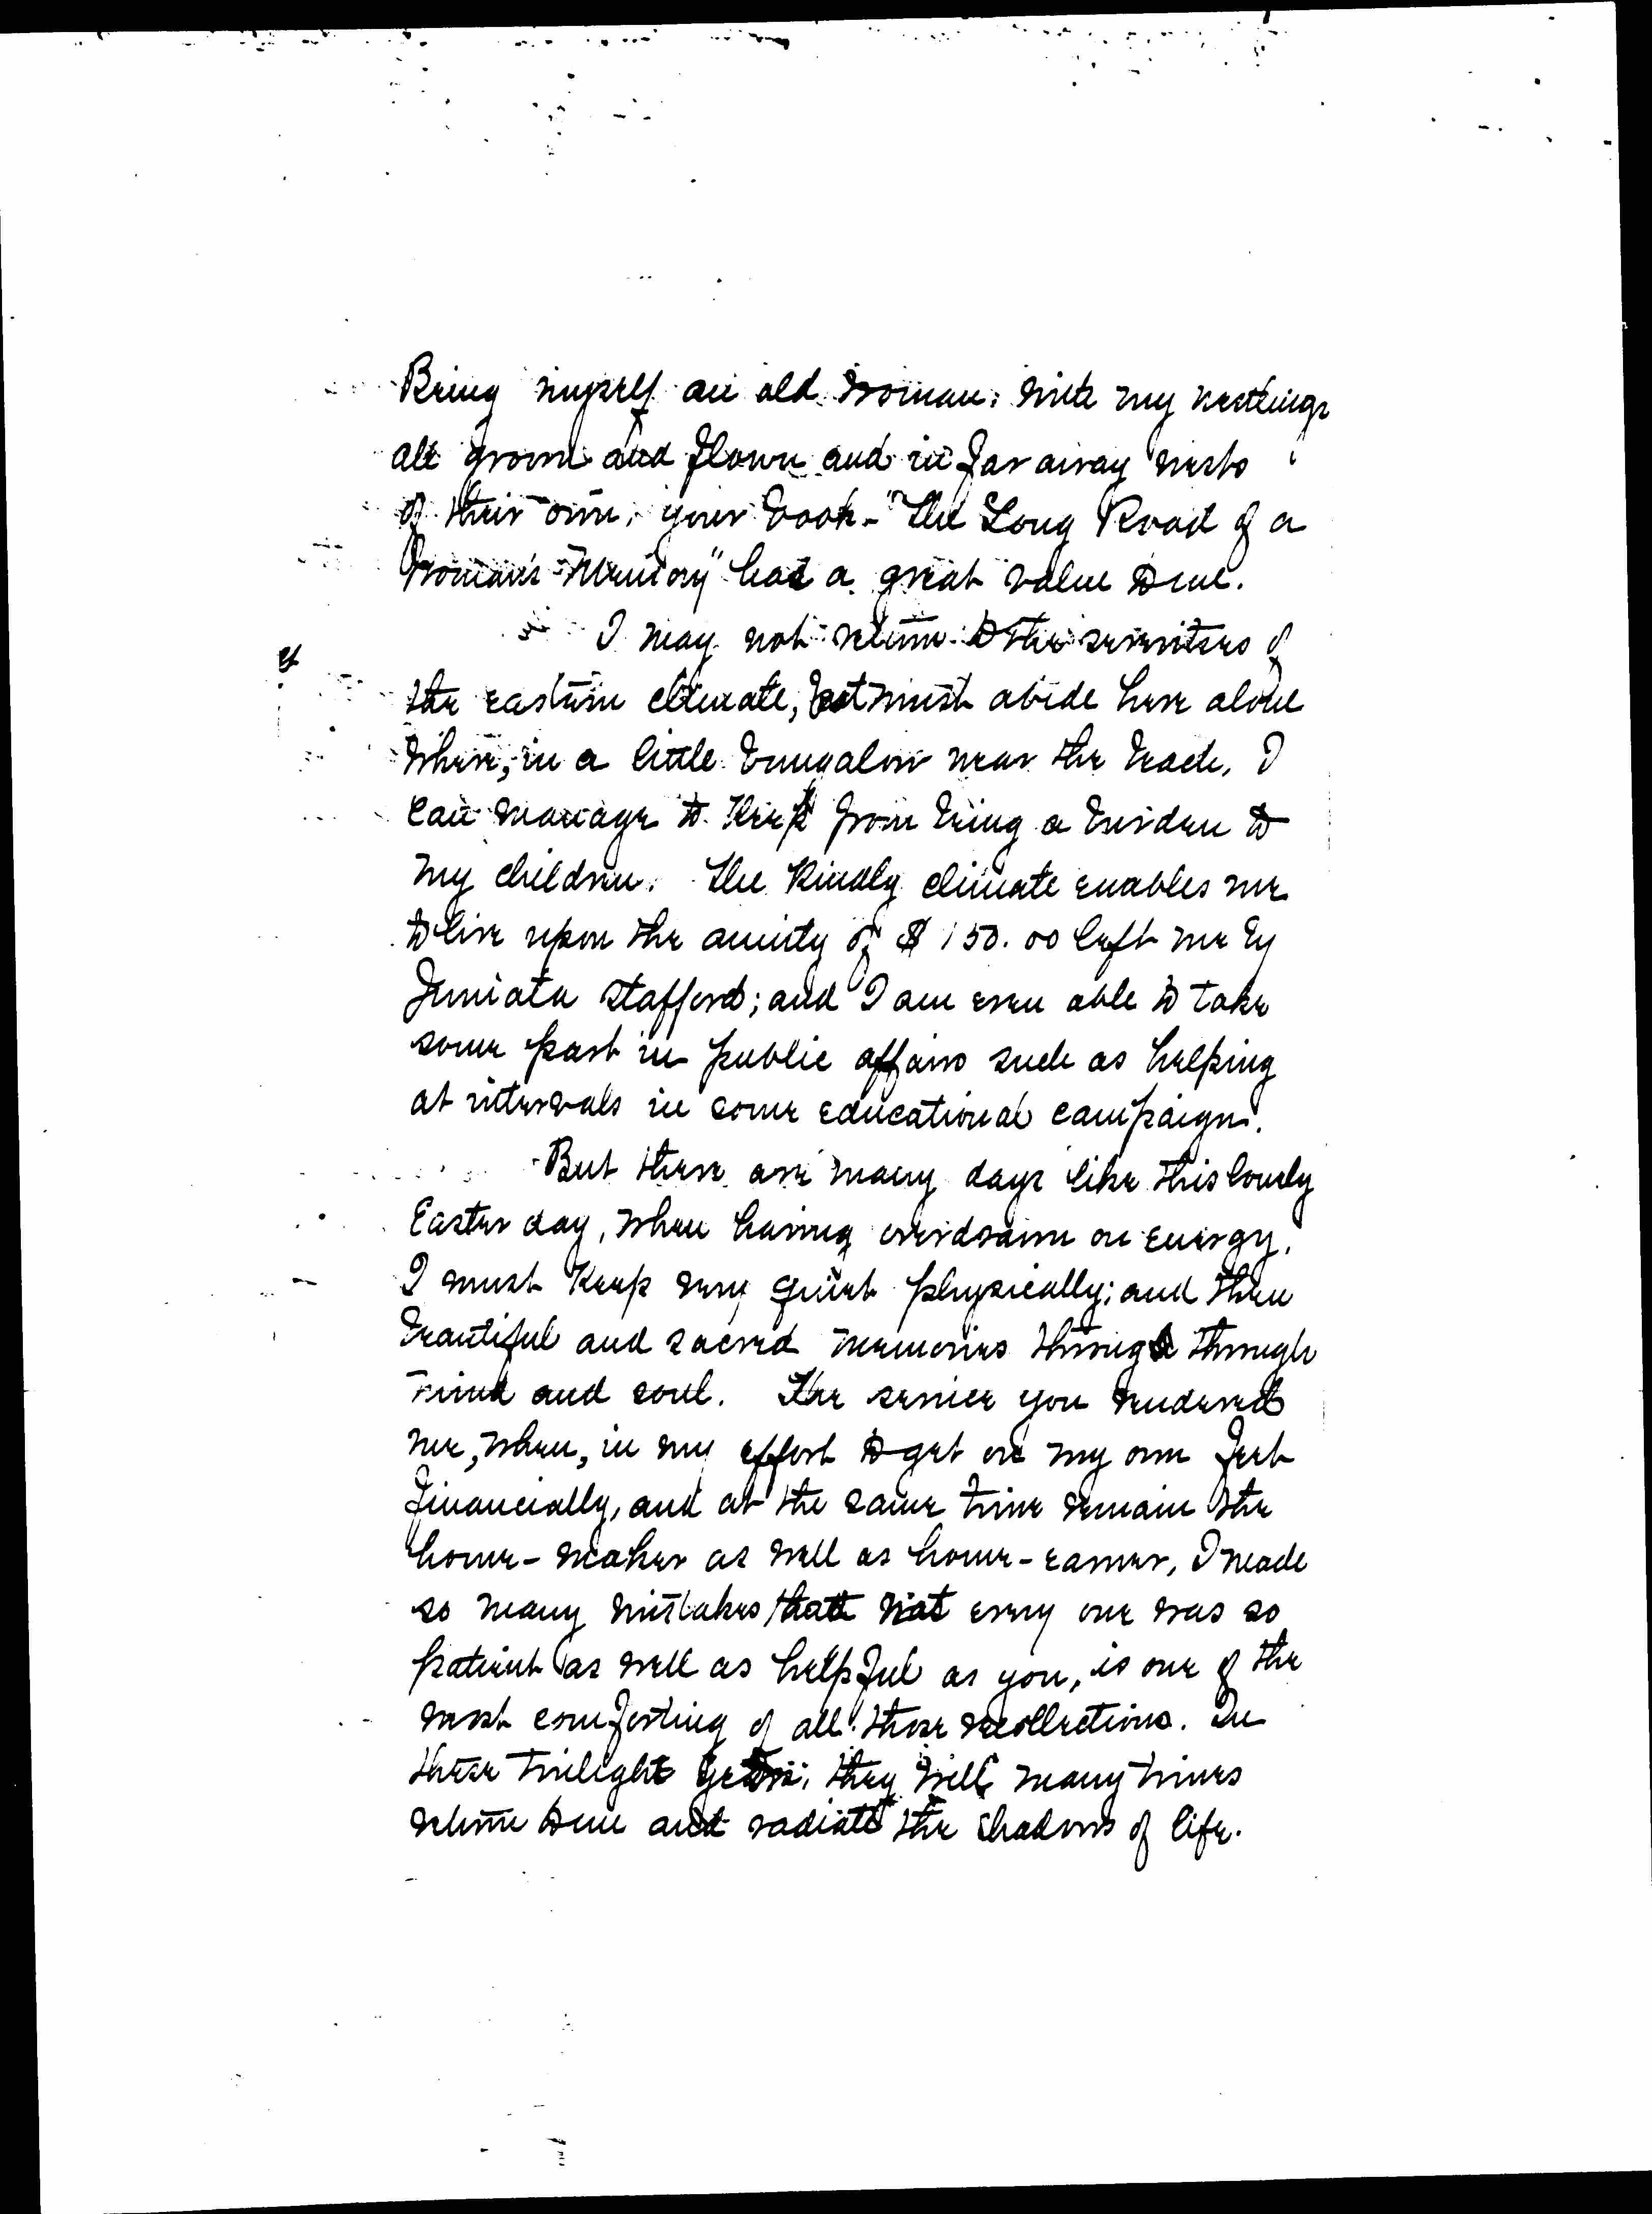 Being myself an old woman, with my nestlings
all grown and flown and in far away nests
of their own, your book - "The Long Road of a
Woman's Memory" has a great value to me.
I may not return to the severities of
the eastern climate, but must abide here alone
where, in a little bungalow near the beach, I
can manage to keep from being a burden to
my children. The kindly climate enables me
to live upon the anuity of $150.00 left me by
Juniata Stafford; and I am even able to take
some part in public affairs such as helping
at intervals in some educational campaign.
But there are many days like this lovely
Easter day, when having overdrawn on energy,
I must keep very quiet physically; and then
beautiful and sacred memories throng through
mind and soul. The service you rendered
me, when, in my effort to get on my own feet
financially, and at the same time remain the
home-maker as well as home-earner, I made
so many mistakes that not every one was so
patient as well as helpful as you, is one of the
most comforting of all those recollections. In
these twilight years, they will many times
return to me and radiate the shadows of life.